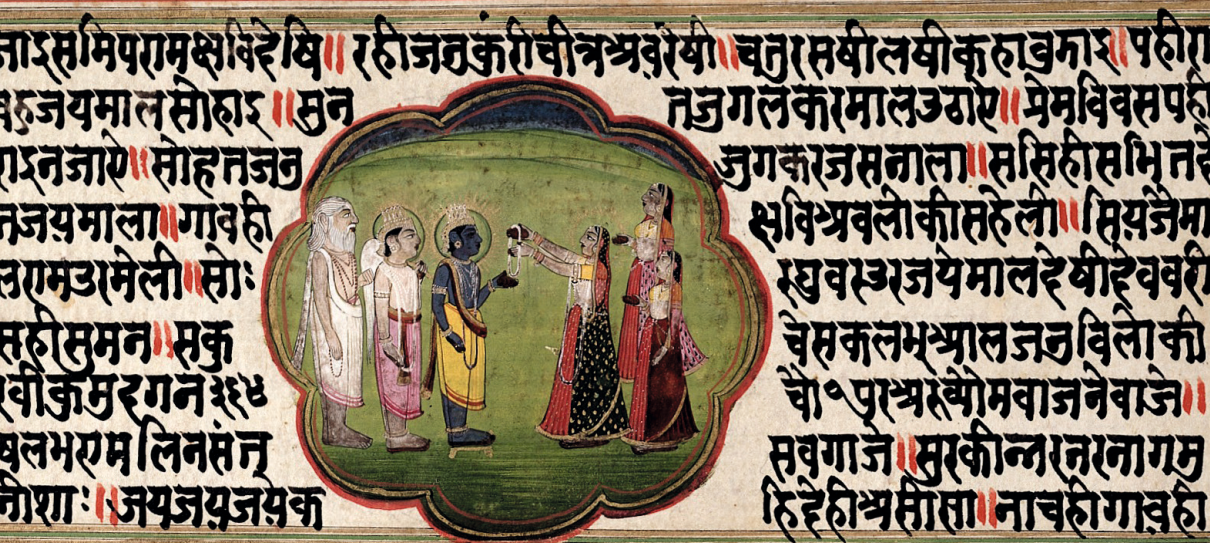 जाइसमिपरामक्षविदेषि॥रहीजनुकुरीचीत्रअवरेषी॥चतुरसषीलषीकहावुझाइ॥पहीरा
वहुजयमालसोहाइ॥सुन तजुगलकरमालउठाऐ॥प्रेमविवसपही
राइनजाऐ॥सोहतजनु जुगकरजसनाला॥ससिहीसभितदे
तजयमाला॥गावही क्षविअवलोकीसहेली॥सियजैमा
लरामउरमेली॥सोः रघुवरउरजयेमालदेषीदेववरी
सहीसुमन॥सकु चेसकलभुआलजनुविलोकी
रवीकुमुदगन२६४ चौ॰पुरअरुव्योमवाजनेवाजे॥
षलभएमलिनसंत् सवगाजे॥सुरकीन्नरनरनागमु
नीशाः॥जयजयजयक हिदेहीअसीसा॥नाचहीगावही